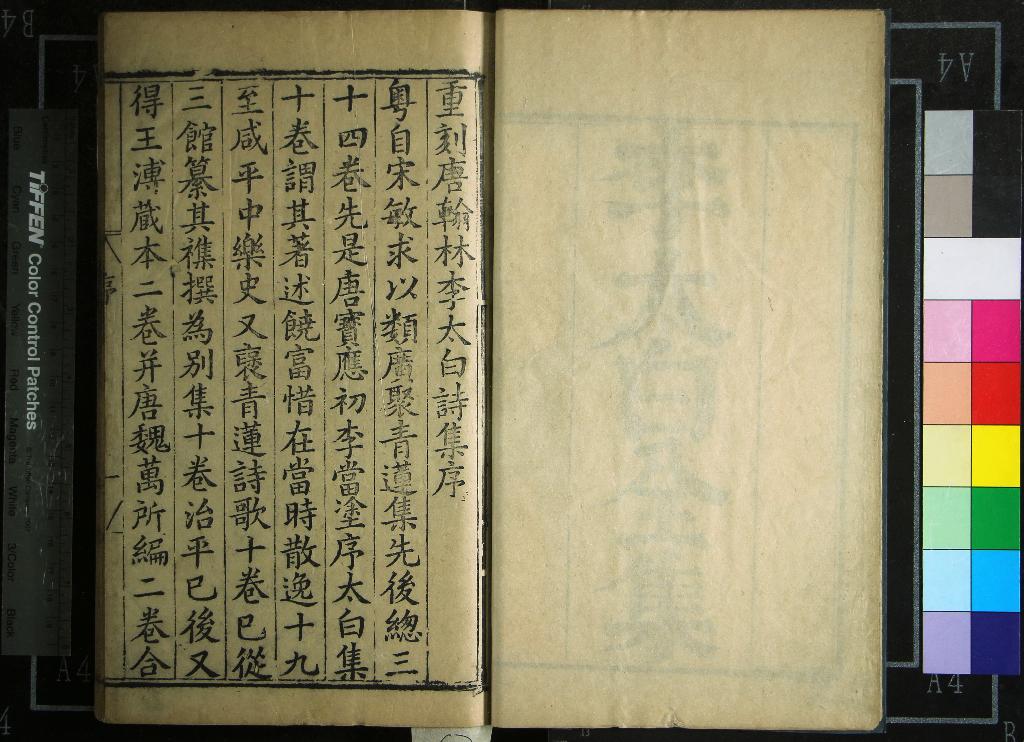 重刻唐翰林李太白詩集序
粤自宋敏求以類廣聚青蓮集先後總三
十四卷先是唐寶應初李當塗序太白集
十卷謂其著述饒富惜在當時散逸十九
至咸平中樂史又裒青蓮詩歌十卷已從
三館纂其襍撰為別集十卷治平已後又
得王溥蔵本二卷并唐魏萬所編二卷合
序
TIFFEN Color Control Patches
Blue Cyan Green Yellow Red Magenta White 3/Color Black
A4
A4
A4
A4
B4
B